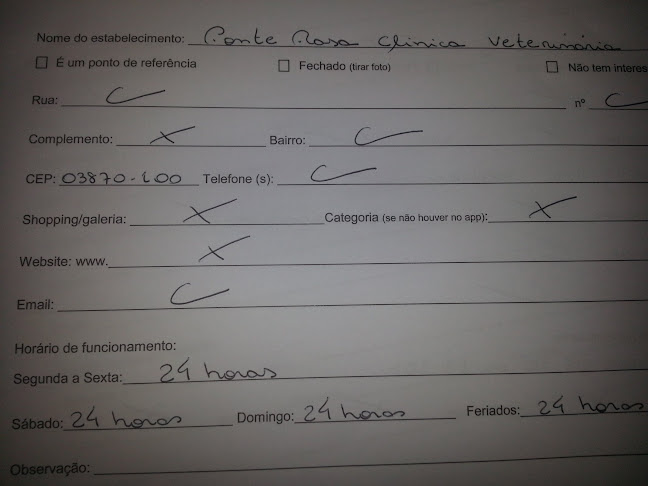 Nome do estabelecimento: Ponte Rasa Clinica Veterinária
É um ponto de referência Fechado (tirar foto) Não tem interes
Rua: nº
Complemento: X Bairro:
CEP: 03870-100 Telefone (s):
Shopping/galeria: X Categoria (se não houver no app): X
Website: www. X
Email:
Horário de funcionamento:
Segunda a Sexta: 24 horas
Sábado: 24 horas Domingo: 24 horas Feriados: 24 horas
Observação: